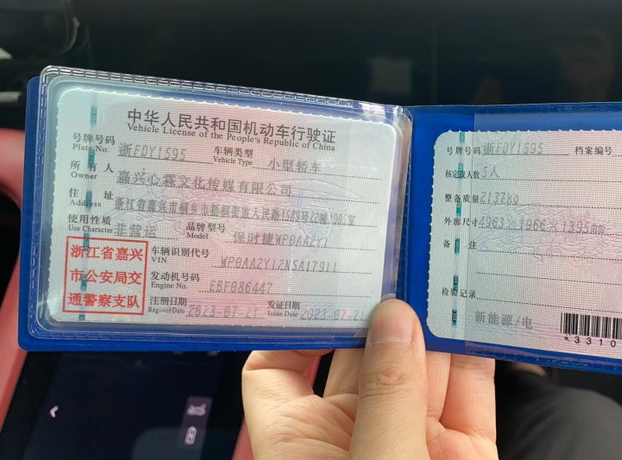 中华人民共和国机动车行驶证
Vehicle License of the People's Republic of China
号牌号码 浙FDY1595 车辆类型 小型轿车
Plate No. Vehicle Type
所有人 嘉兴心霖文化传媒有限公司
Owner
住址 浙江省嘉兴市桐乡市梧桐街道人民路
Address
使用性质 非营运 品牌型号 保时捷WP0AA2Y1
Use Character Model
浙江省嘉兴
市公安局交
通警察支队
车辆识别代号 WP0AA2Y12NSA17911
VIN
发动机号码 EBF086447
Engine No.
注册日期 2023-07-21 发证日期 2023-07-21
Register Date Issue Date
号牌号码 浙FDY1595 档案编号
核定载人数 5人
整备质量 2132kg
外廓尺寸 4963×1966×1395mm
备注
检验记录
新能源/电
*3310